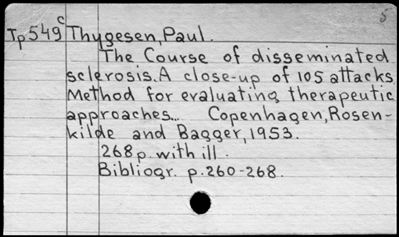 5
Tp549c Thygesen, Paul.
The Course of disseminated
sclerosis. A close-up of 105 attacks
Method for evaluating therapeutic
approaches... Copenhagen, Rosen-
kilde and Bagger, 1953.
268p. with ill.
Bibliogr. p. 260-268.